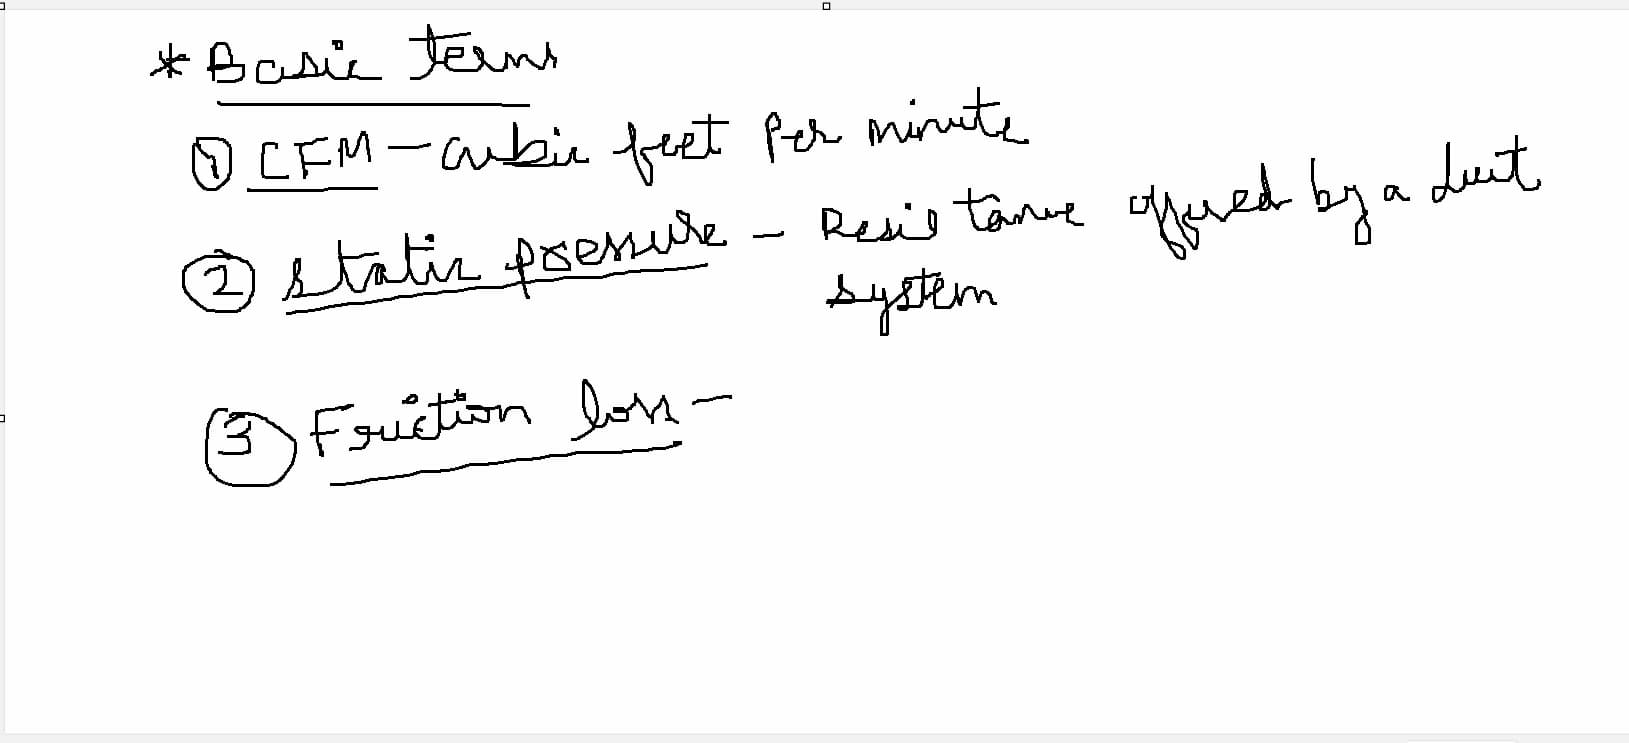 * Basic terms
① CFM - cubic feet per minute
② static pressure - Resistance offered by a duct
system
③ Friction loss -